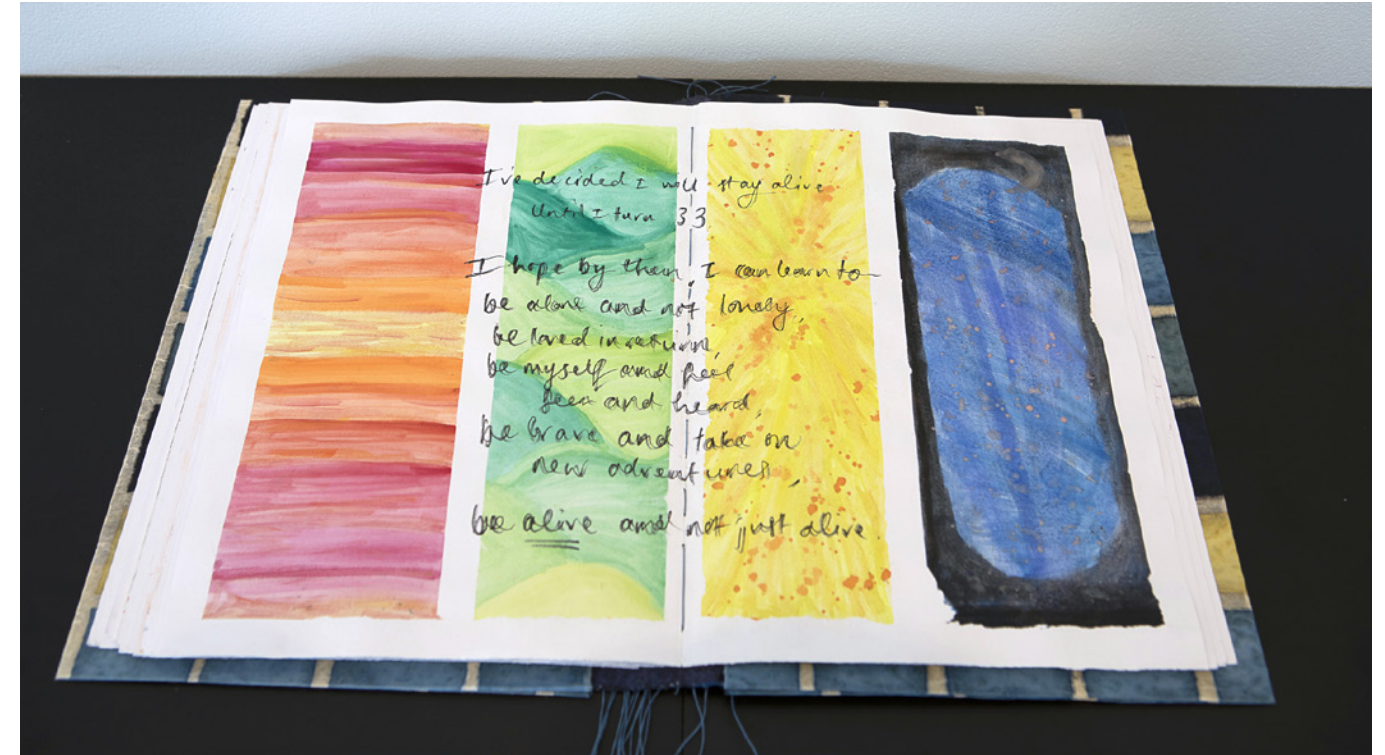 I've decided I will stay alive
Until I turn 33
I hope by then, I can learn to
be alone and not lonely,
be loved in return,
be myself and feel
seen and heard,
be brave and take on
new adventures,
be alive and not just alive.